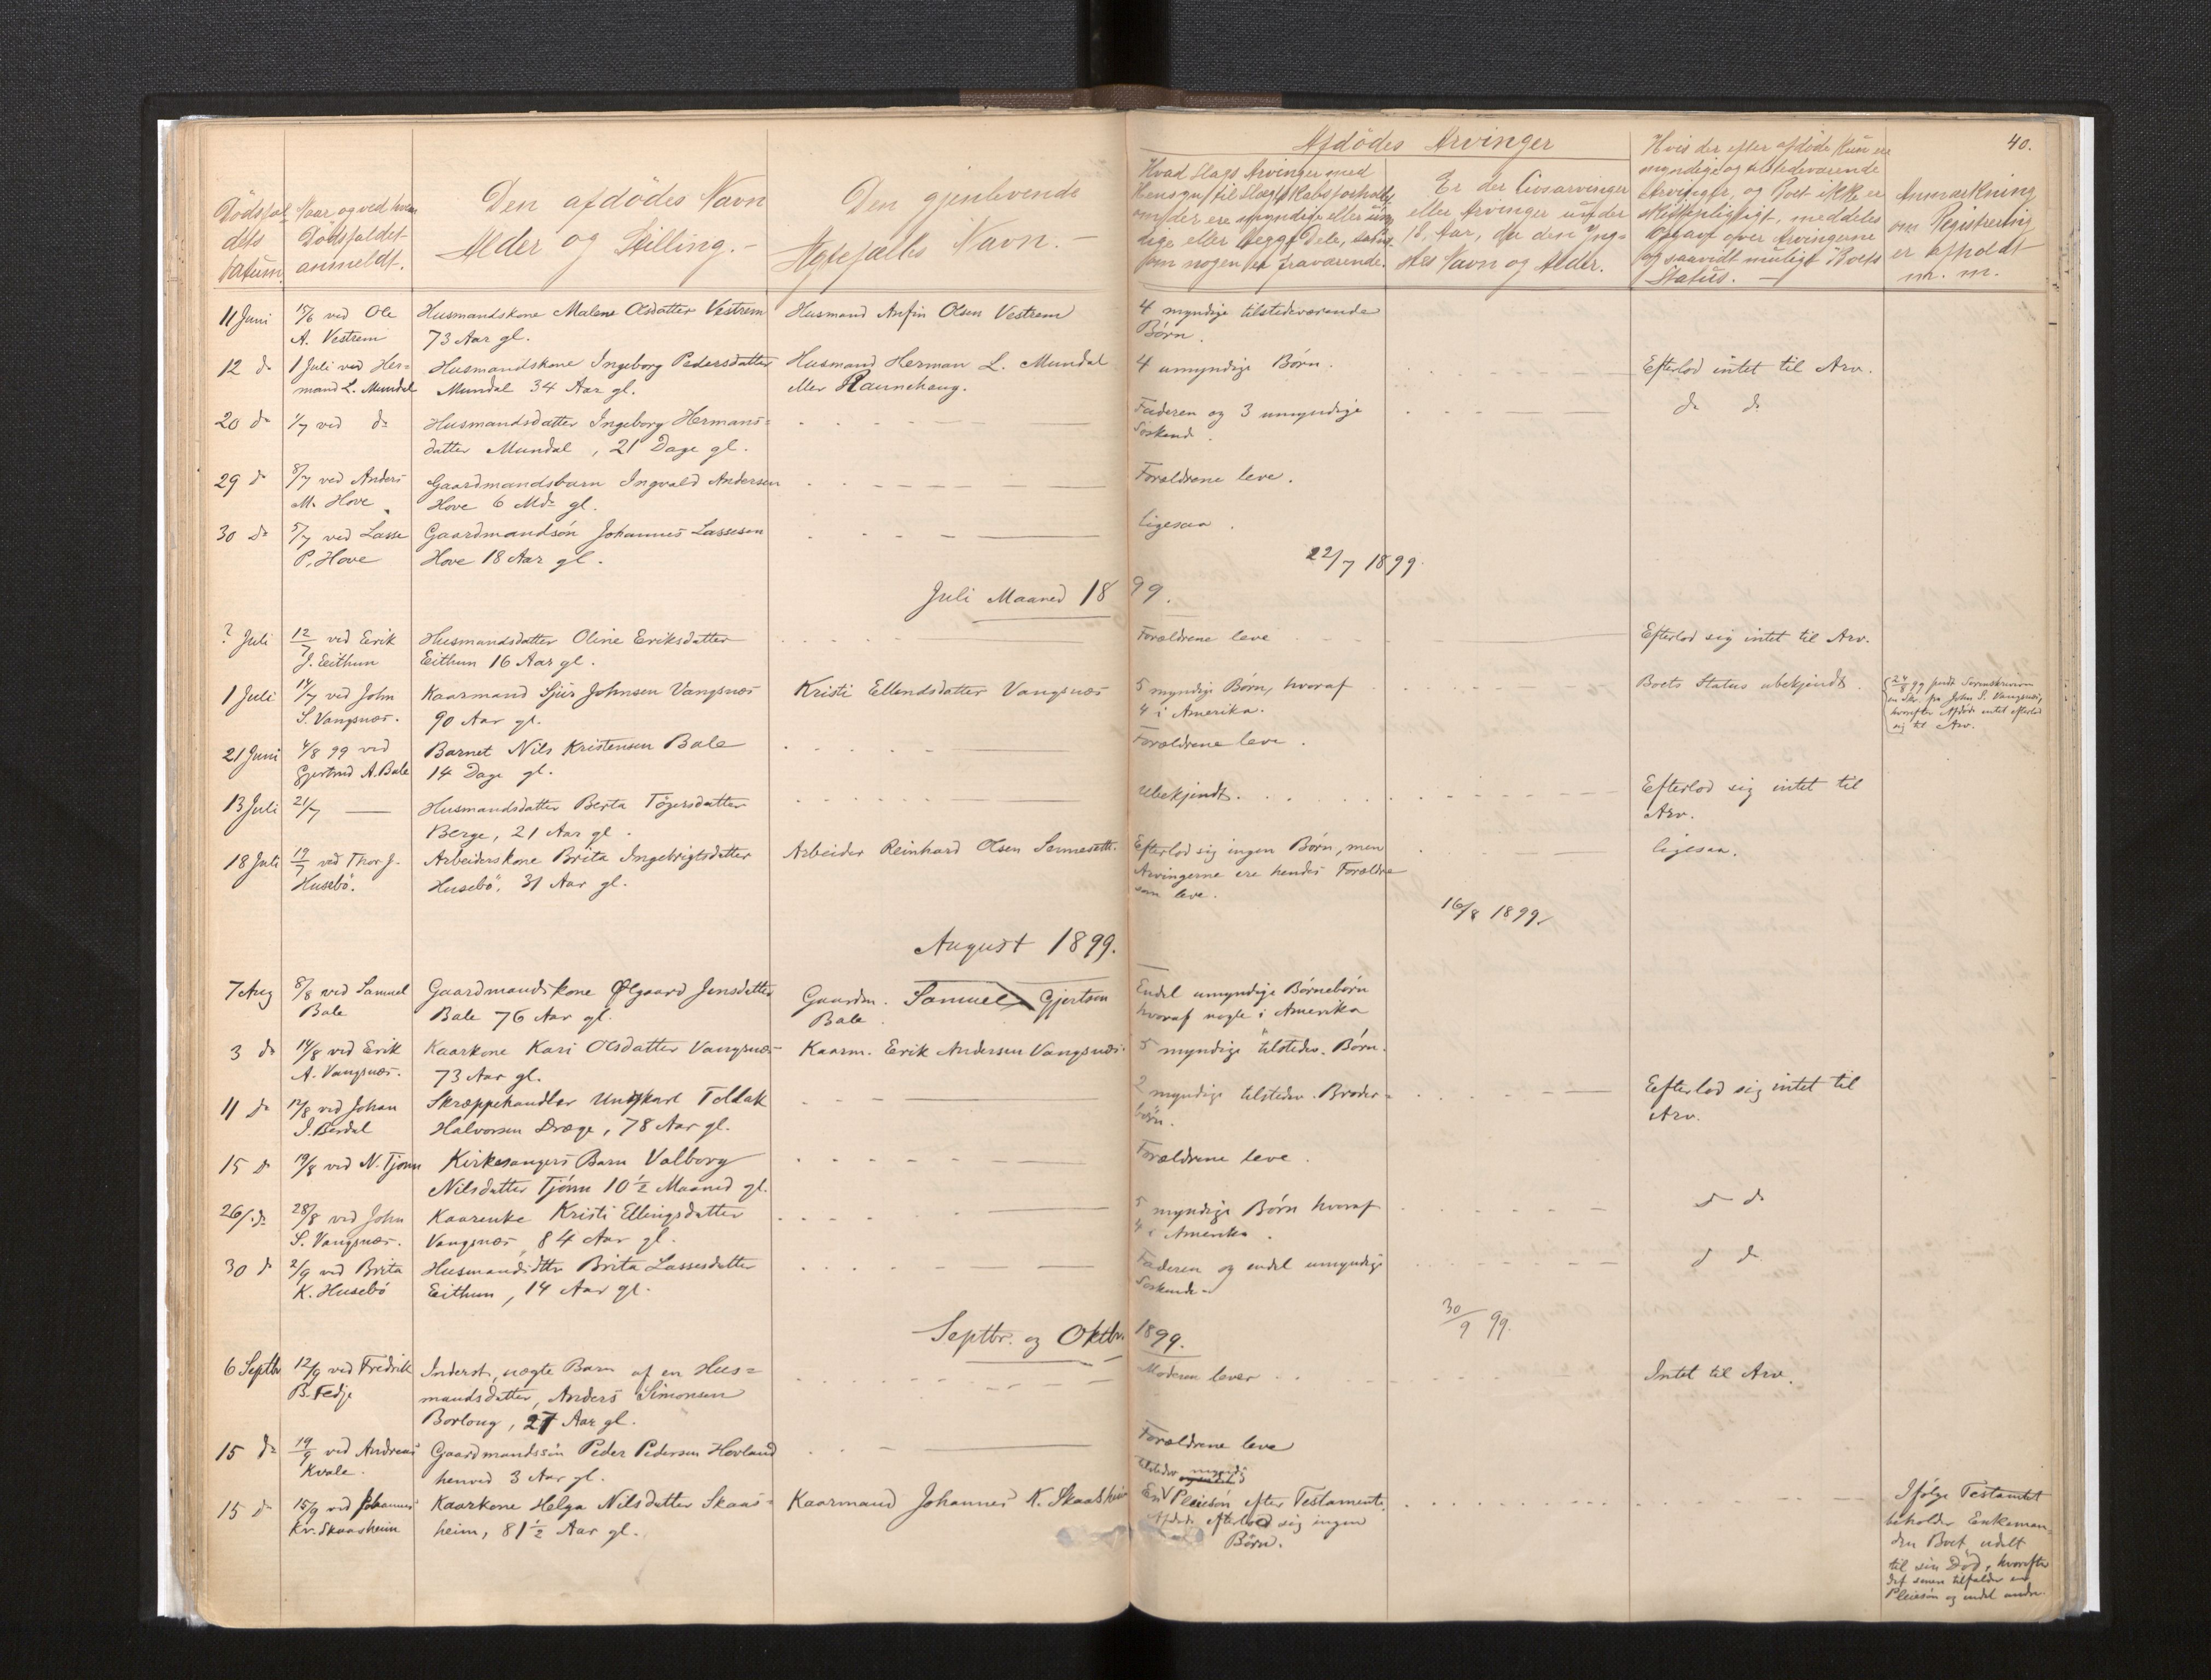 40.
Dödsfal
dets
Datum.
Naar og ved hvem
Dödsfaldet
anmeldt.
Den afdödes Navn
Alder og Stilling.-
Den gjenlevende
Ægtefælles Navn.-
Afdödes Arvinger
Hvad Slags Arvinger med
Hensyn til Slægtskabsforholdet
om der ere umyndige eller myn
dige eller begge Dele, samt
om nogen er fraværende.
Er der Livsarvinger
eller Arvinger under
18 Aar, da den Yng-
stes Navn og Alder.
Hvis der efter afdöde kun ere
myndige og tilstedeværende
Arvinger, og Boet ikke er
skiftepligtigt, meddeles
Opgave over Arvingerne
og saavidt muligt Boets
Status.
Anmærkning
om Registrering
er afholdt
m. m.
11 Juni 15/6 ved Ole Husmandskone Malene Olsdatter Vestrem Husmand Anfin Olsen Vestrem 4 myndige tilstedeværende
A. Vestrem 73 Aar gl. Børn.
12 do 1 Juli ved Her= Husmandskone Ingeborg Pedersdatter Husmand Herman L. Mundal 4 umyndige Børn. Efterlod intet til Arv.
mand L. Mundal Mundal 34 Aar gl. eller Raunehaug.
20 do 1/7 ved do Husmandsdatter Ingeborg Hermans= Faderen og 3 umyndige do do
datter Mundal, 21 Dage gl. Söskend.
29 do 8/7 ved Anders Gaardmandsbarn Ingvald Andersen Forældrene leve.
M. Hove Hove 6 Mdr gl.
30 do 5/7 ved Lasse Gaardmandsön Johannes Lassesen ligesaa.
P. Hove Hove 18 Aar gl.
22/7 1899.
Juli Maaned 1899.
? Juli 12/7 ved Eirik Husmandsdatter Oline Eriksdatter Forældrene leve Efterlod sig intet til Arv.
J. Eithun Eithun 16 Aar gl.
1 Juli 14/7 ved John Kaarmand Sjur Johnsen Vangsnæs Kristi Ellendsdatter Vangsnæs 5 myndige Børn, hvoraf Boets Status ubekjendt.
S. Vangsnæs. 90 Aar gl. 4 i Amerika.
24/8 99
en Skr. fra John S. Vangsnæs,
hvorefter Afdöde intet efterlod
sig til Arv.
21 Juni 4/8 99 ved Barnet Nils Kristensen Bale Forældrene leve.
Gjertrud A. Bale 14 Dage gl.
13 Juli 21/7 Husmandsdatter Berta Tögersdatter Ubekjendt. Efterlod sig intet til
Berge, 21 Aar gl. Arv.
18 Juli 19/7 ved Thor J. Arbeiderskone Brita Ingebrigtsdatter Arbeider Reinhard Olsen Efterlod sig ingen Börn, men ligesaa.
Husebö. Husebö, 31 Aar gl. Arvingerne ere hendes Forældre
som leve.
16/8 1899.
August 1899.
7 Aug 8/8 ved Samuel Gaardmandskone Ølgaard Jensdatter Gaardm. Samuel Gjertsen Endel umyndige Börnebörn
Bale Bale 76 Aar gl. Bale. hvoraf nogle i Amerika
3 do 14/8 ved Erik Kaarkone Kari Olsdatter Vangsnæs Kaarm. Erik Andersen Vangsnæs. 5 myndige tilstedev. Börn.
A. Vangsnæs. 73 Aar gl.
11 do 12/8 ved Johan Skræppehandler Ungkarl Tollak 2 myndige tilstedev. Broder= Eefterlod sig intet til
J. Berdal Halvorsen Dræge, 78 Aar gl. börn. Arv.
15 do 19/8 ved N. Tjönn Kirkesangers Barn Valborg Forældrene leve.
Nilsdatter Tjönn 10 1/2 Maaned gl.
26/. do 28/8 ved John Kaarenke Kristi Ellingsdatter 5 myndige Börn hvoraf d d
S. Vangsnæs. Vangsnæs, 84 Aar gl. 4 i Amerika.
30 d 2/9 ved Brita Husmandsdttr Brita Lassesdatter Faderen og endel umyndige d d
K. Husebö Eithun, 14 Aar gl. Söskende
30/9 99.
Septbr. og Oktbr. 1899.
6 Septbr 12/9 ved Fredrik Inderst, uægte Barn af en Hus= Moderen lever Intet til Arv.
B. Fedje mandsdatter, Anders Simonsen
Borlaug, 27 Aar gl.
15 do 19/9 ved Andreas Gaardmandssön Peder Pedersen Hovland Forældrene leve
Kvale. henved 3 Aar gl.
15 do 15/9 ved Johannes Kaarkone Helga Nilsdatter Skaas= Kaarmand Johannes K. Skaasheim En Pleiesön efter Testamente.
Kr. Skaasheim heim, 81 1/2 Aar gl. Afdøde efterlod sig ingen
Börn.
tilstedev. myndig
Ifølge Testamtet
beholder Enkeman=
den Boet udelt
til sin Död, hvorefter
det senere tilfalder en
Pleiesön og endel andre